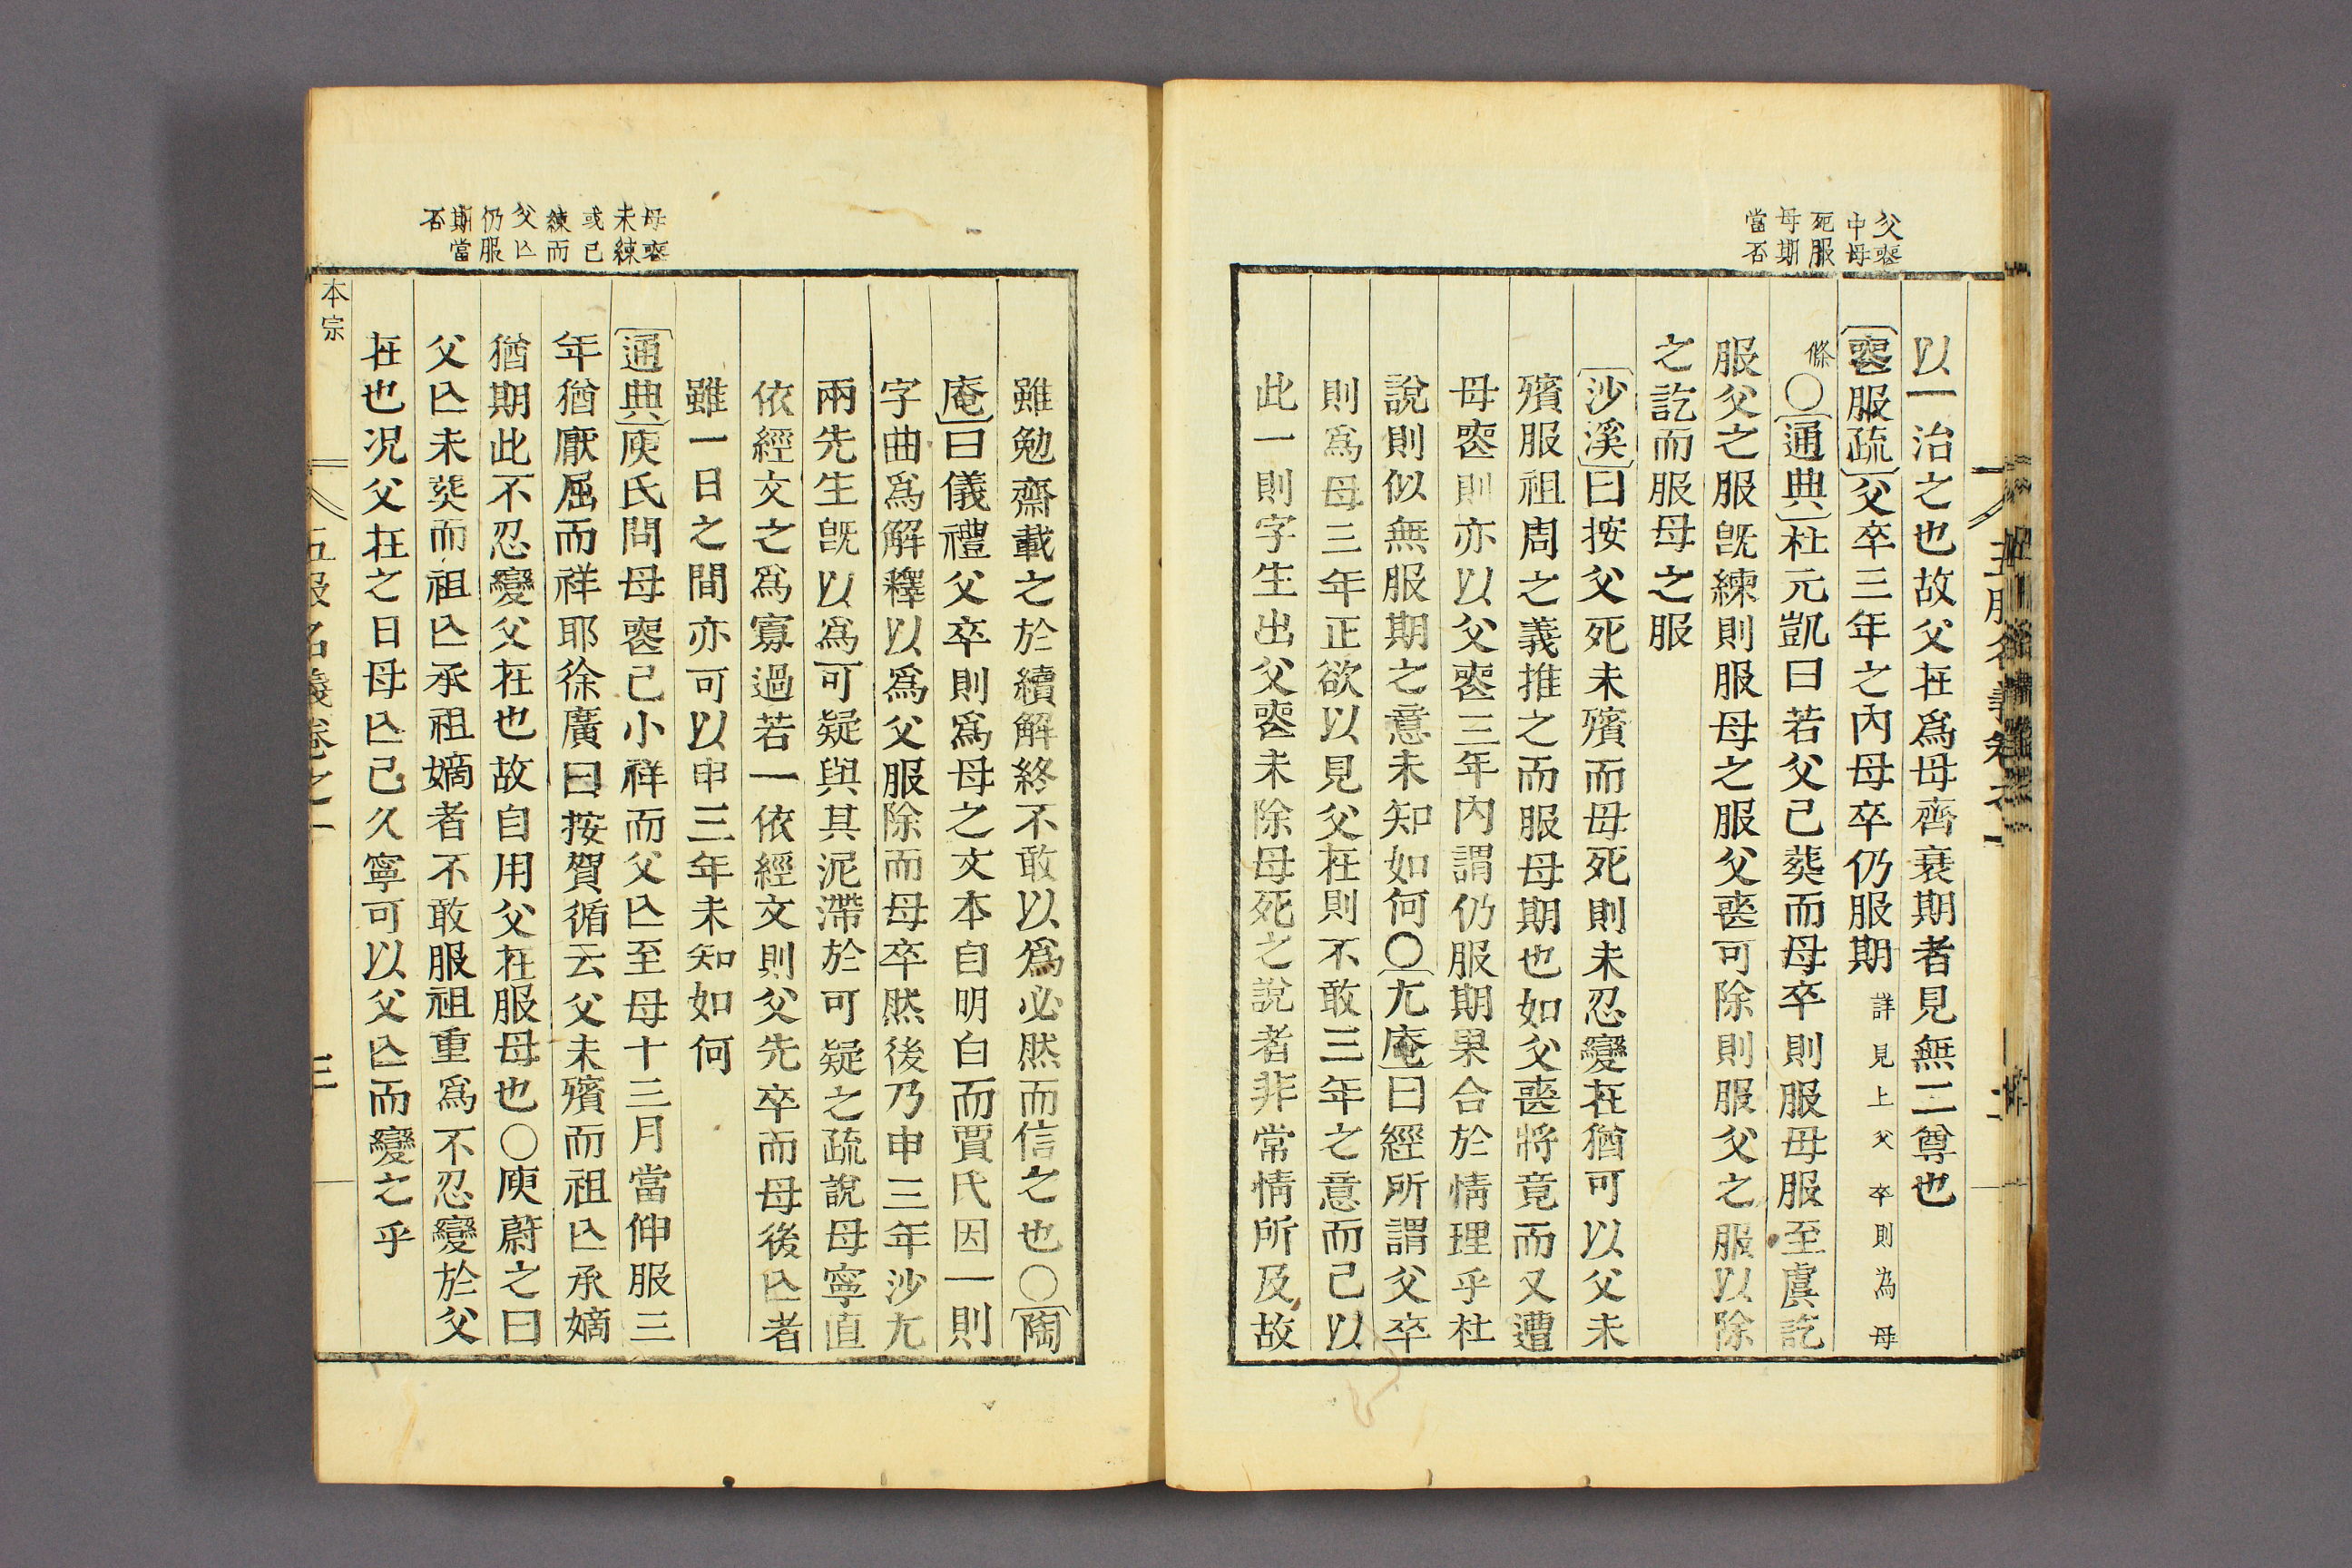 父喪
中母
死服
母期
當否
以一治之也故父在爲母齊衰期者見無二尊也
喪服疏父卒三年之內母卒仍服期詳見上父卒則為母
條○通典杜元凱曰若父已葬而母卒則服母服至虞訖
服父之服旣練則服母之服父喪可除則服父之服以除
之訖而服母之服
沙溪曰按父死未殯而母死則未忍變在猶可以父未
殯服祖周之義推之而服母期也如父喪將竟而又遭
母喪則亦以父喪三年內謂仍服期果合於情理乎杜
說則似無服期之意未知如何○尤庵曰經所謂父卒
則爲母三年正欲以見父在則不敢三年之意而已以
此一則字生出父喪未除母死之說者非常情所及故
母喪
未練
或已
練而
父亡
仍服
期當
否
雖勉齋載之於續解終不敢以爲必然而信之也○陶
庵曰儀禮父卒則爲母之文本自明白而賈氏因一則
字曲爲解釋以爲父服除而母卒然後乃申三年沙尤
兩先生旣以爲可疑與其泥滯於可疑之疏說毋寧直
依經文之爲寡過若一依經文則父先卒而母後亡者
雖一日之間亦可以申三年未知如何
通典庾氏問母喪已小祥而父亡至母十三月當伸服三
年猶厭屈而祥耶徐廣曰按賀循云父未殯而祖亡承嫡
猶期此不忍變父在也故自用父在服母也○庾蔚之曰
父亡未葬而祖亡承祖嫡者不敢服祖重爲不忍變於父
在也况父在之日母亡已久寧可以父亡而變之乎
本宗
五服名義卷之一
三